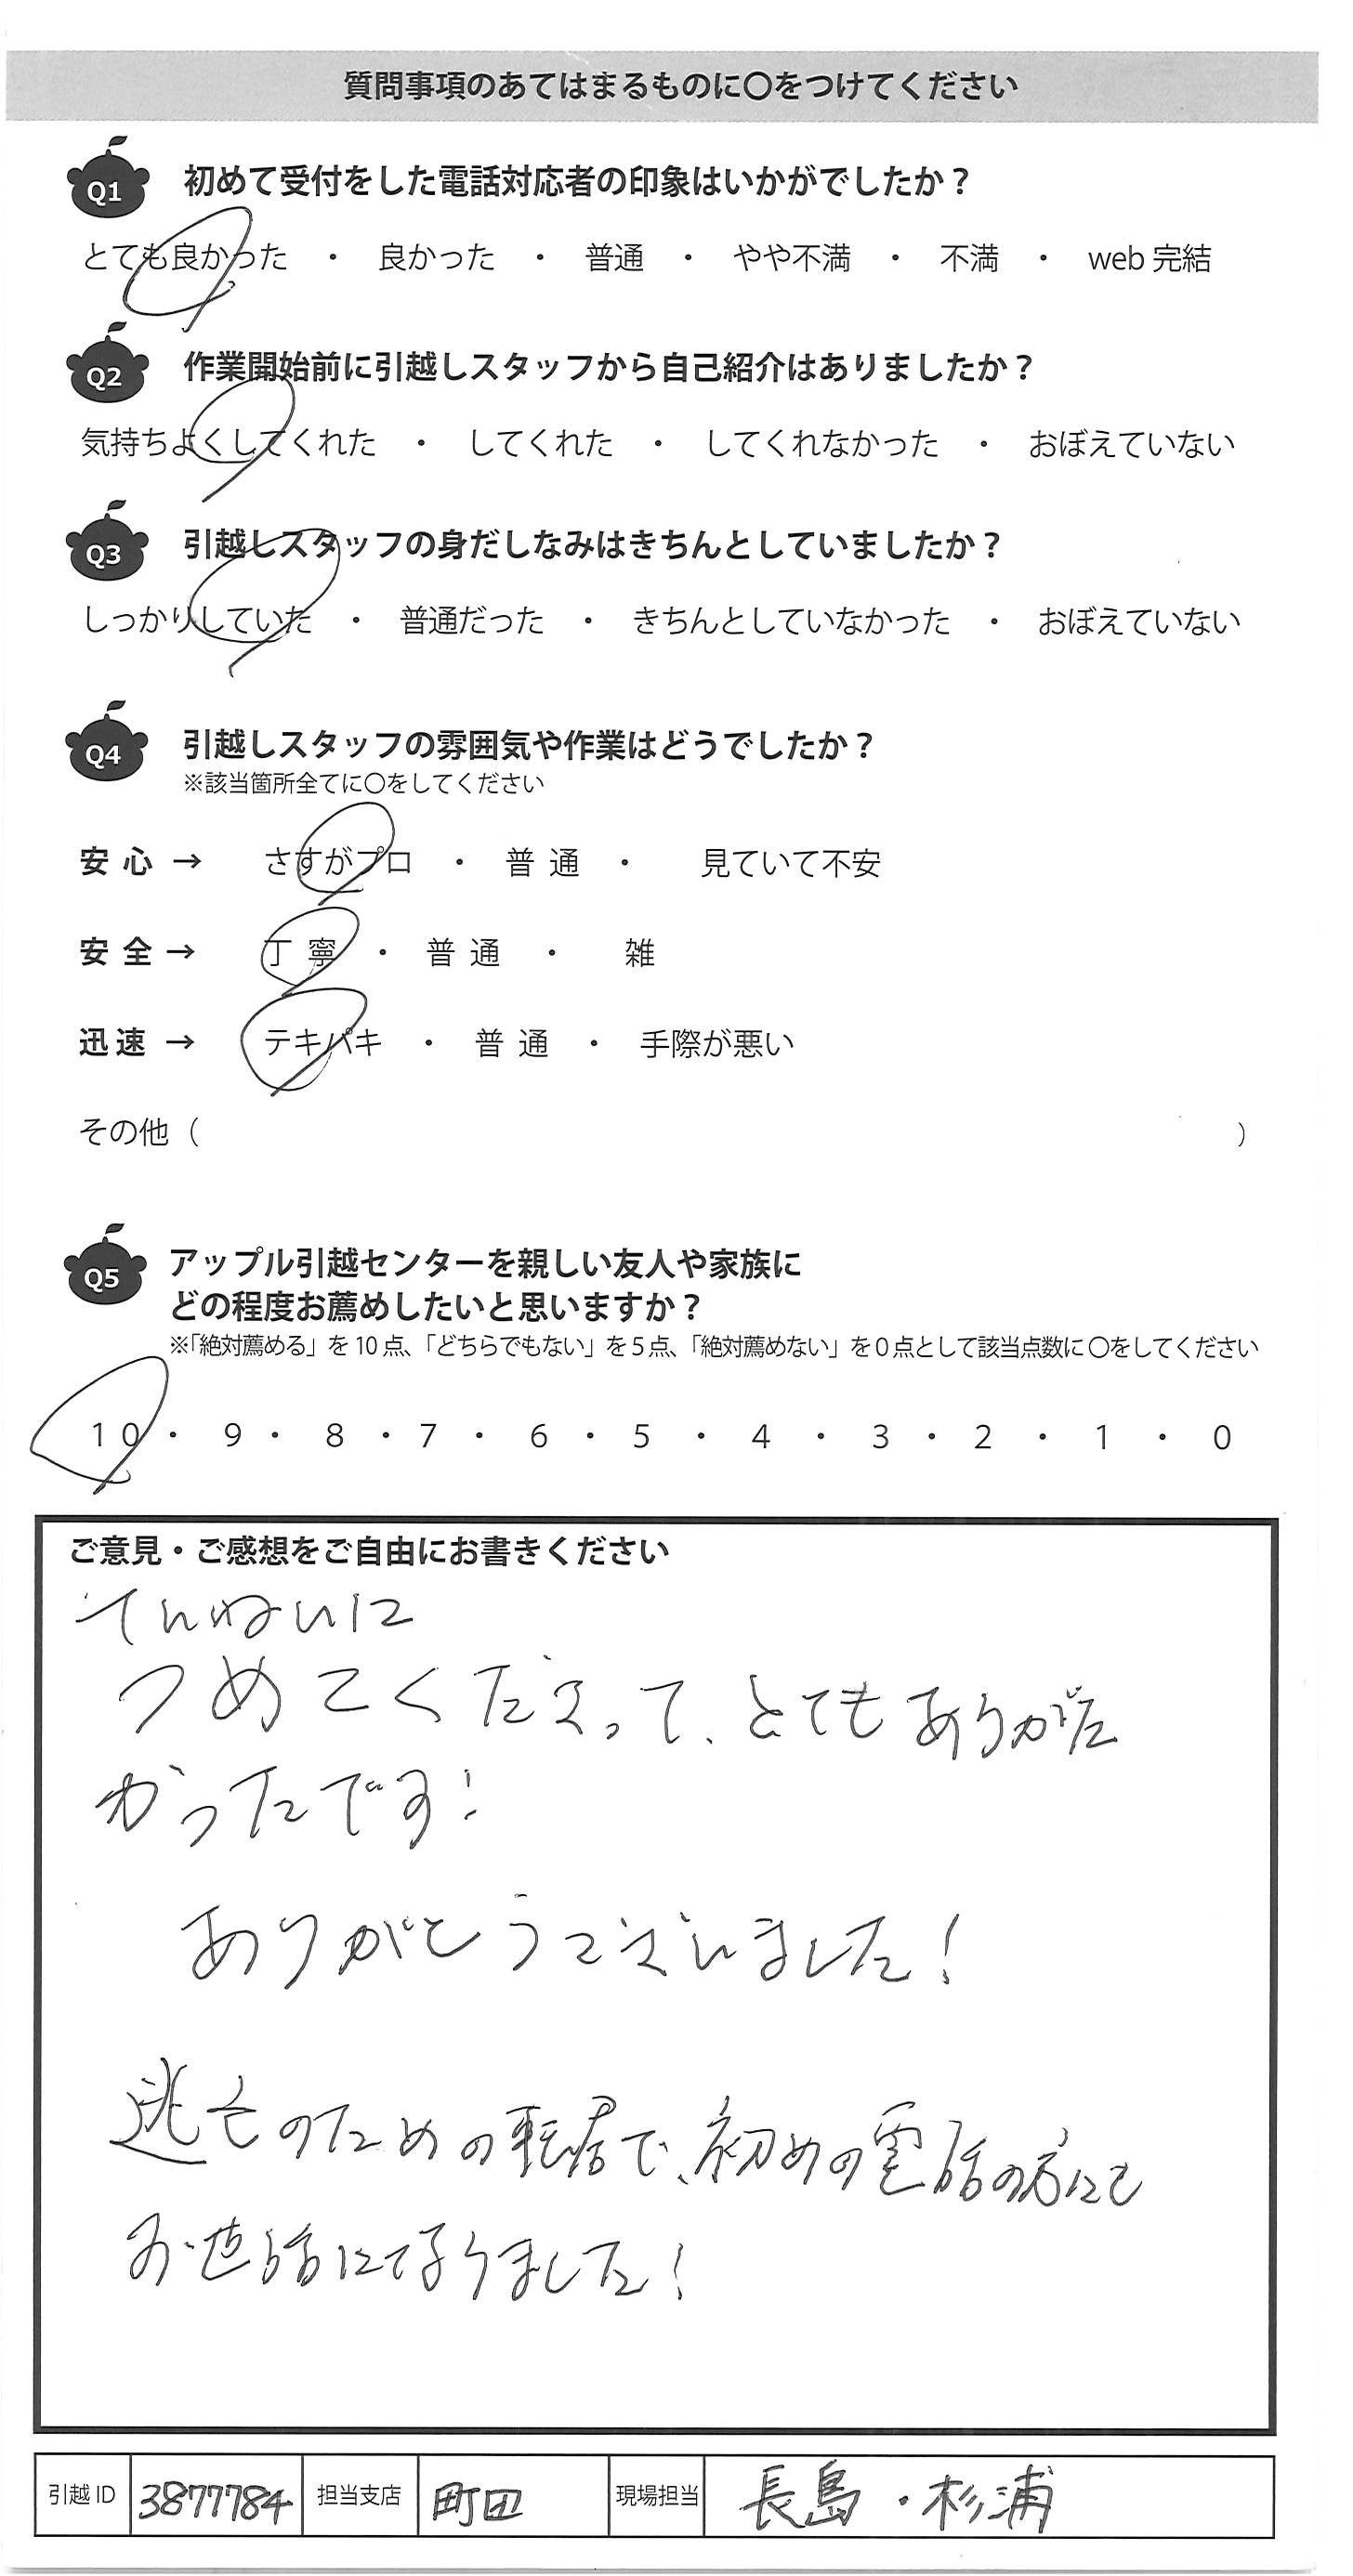 質問事項のあてはまるものに〇をつけてください
Q1 初めて受付をした電話対応者の印象はいかがでしたか？
とても良かった ・ 良かった ・ 普通 ・ やや不満 ・ 不満 ・ web 完結
Q2 作業開始前に引越しスタッフから自己紹介はありましたか？
気持ちよくしてくれた ・ してくれた ・ してくれなかった ・ おぼえていない
Q3 引越しスタッフの身だしなみはきちんとしていましたか？
しっかりしていた ・ 普通だった ・ きちんとしていなかった ・ おぼえていない
Q4 引越しスタッフの雰囲気や作業はどうでしたか？
※該当箇所全てに〇をしてください
安心 → さすがプロ ・ 普通 ・ 見ていて不安
安全 → 丁寧 ・ 普通 ・ 雑
迅速 → テキパキ ・ 普通 ・ 手際が悪い
その他（ ）
Q5 アップル引越センターを親しい友人や家族に
どの程度お薦めしたいと思いますか？
※「絶対薦める」を10点、「どちらでもない」を5点、「絶対薦めない」を0点として該当点数に〇をしてください
10 ・ 9 ・ 8 ・ 7 ・ 6 ・ 5 ・ 4 ・ 3 ・ 2 ・ 1 ・ 0
ご意見・ご感想をご自由にお書きください
ていねいに
つめてくださって、とてもありがた
かったです！
ありがとうございました！
のための転居で、初めの電話の方にも
お世話になりました！
引越ID 3877784 担当支店 町田 現場担当 長島・杉浦